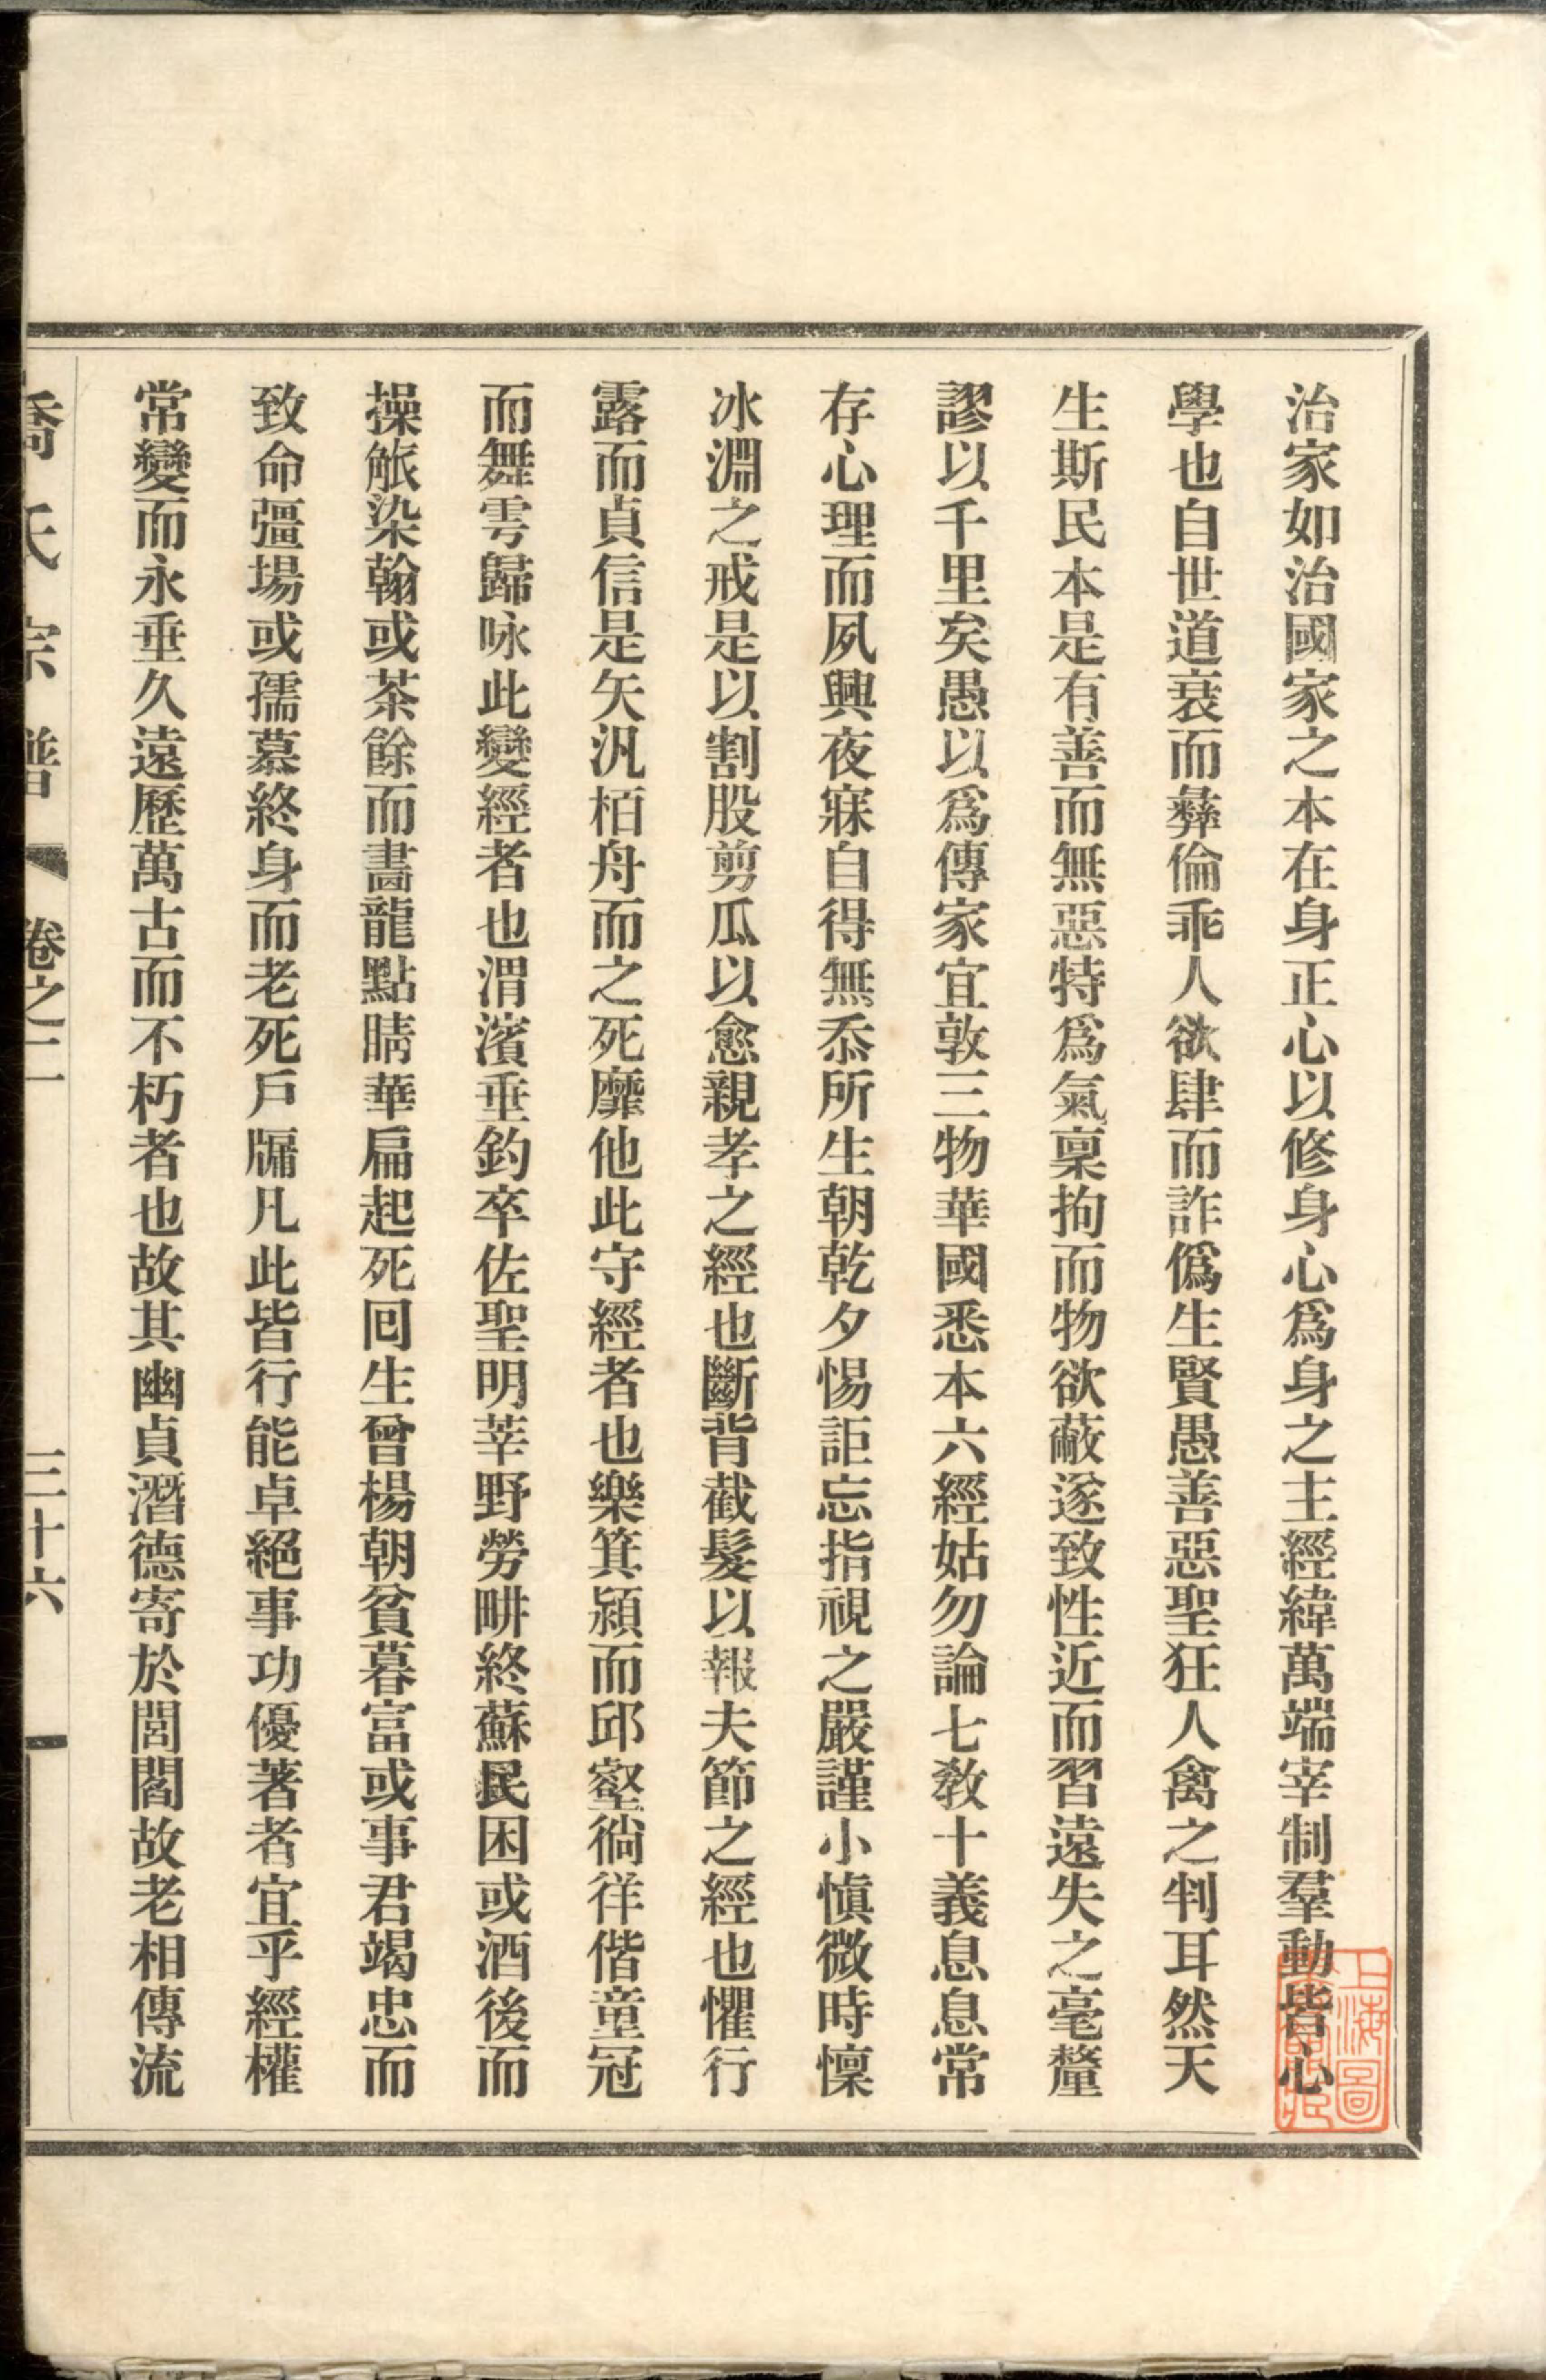 治家如治國家之本在身正心以修身心爲身之主經緯萬端宰制羣動皆心
學也自世道衰而彝倫乖人欲肆而詐僞生賢愚善惡聖狂人禽之判耳然天
生斯民本是有善而無惡特爲氣稟拘而物欲蔽遂致性近而習遠失之毫釐
謬以千里矣愚以爲傳家宜敦三物華國悉本六經姑勿論七敎十義息息常
存心理而夙興夜寐自得無忝所生朝乾夕惕詎忘指視之嚴謹小愼微時懍
冰淵之戒是以割股剪瓜以愈親孝之經也斷背截髮以報夫節之經也懼行
露而貞信是矢汎栢舟而之死靡他此守經者也樂箕潁而邱壑徜徉偕童冠
而舞雩歸咏此變經者也渭濱垂釣卒佐聖明莘野勞畊終蘇民困或酒後而
操觚染翰或茶餘而畵龍點睛華扁起死囘生曾楊朝貧暮富或事君竭忠而
致命彊場或孺慕終身而老死戶牖凡此皆行能卓絕事功優著者宜乎經權
常變而永垂久遠歷萬古而不朽者也故其幽貞潛德寄於閭閻故老相傳流
喬氏宗譜 卷之二 三十六
上海圖